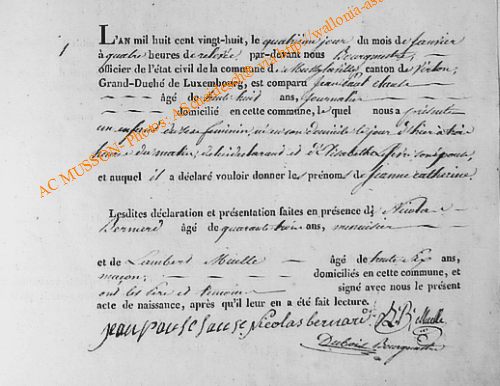 1
L'AN mil huit cent vingt-huit, le quatrième jour du mois de janvier
à quatre heures de relevée, par-devant nous Bourgmestre,
officier de l'état civil de la commune de canton de Virton,
Grand-Duché de Luxembourg, est comparu jean paul clause
âgé de trente huit ans, journalier
domicilié en cette commune, lequel nous a présenté
un enfant du sexe féminin, né en son domicile le jour d'hier à trois
heures du matin, de lui déclarant et d'Elisabeth son épouse
et auquel il a déclaré vouloir donner les prénoms de jeanne catherine
Lesdites déclaration et présentation faites en présence de Nicolas
Bernard âgé de quarante trois ans, menuisier
et de Lambert Muelle âgé de trente six ans,
maçon, domiciliés en cette commune, et
ont les père et témoins signé avec nous le présent
acte de naissance, après qu'il leur en a été fait lecture.
jean paul clause Nicolas bernard Muelle
Bourgmestre
AC MUSSON